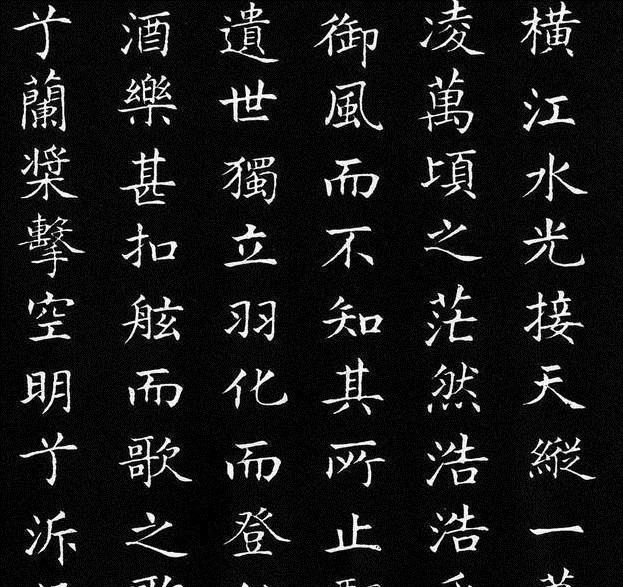 橫江水光接天縱一
凌萬頃之茫然浩浩
御風而不知其所止
遺世獨立羽化而登
酒樂甚扣舷而歌之
兮蘭槳擊空明兮泝